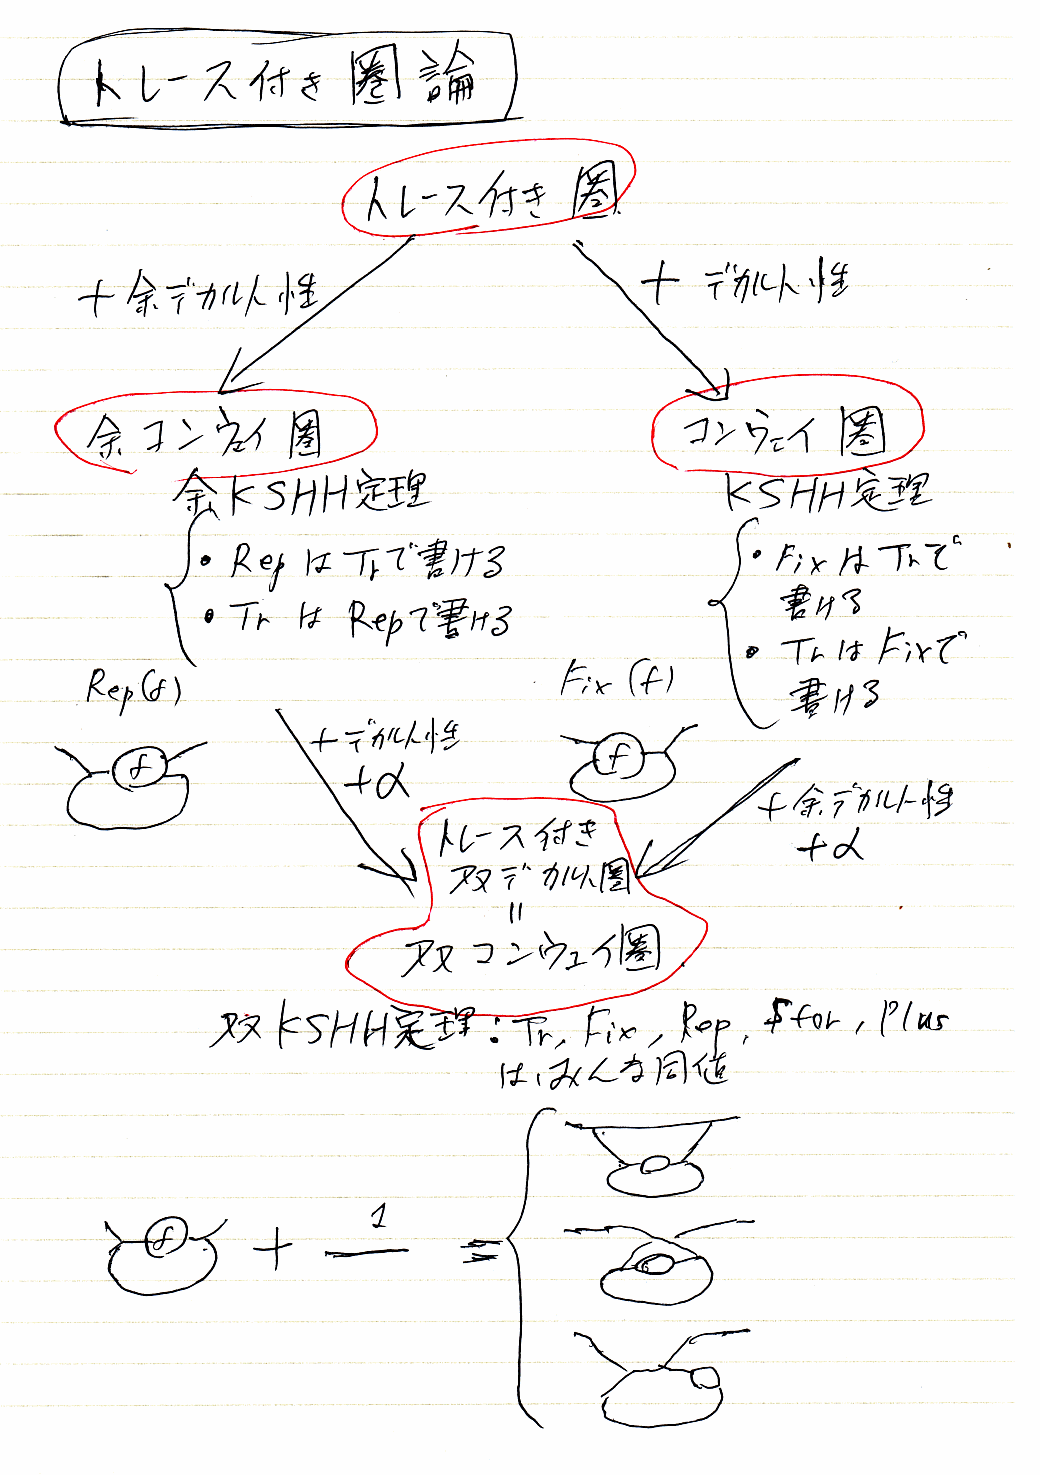 トレース付き圏論
トレース付き圏
+ 余デカルト性
+ デカルト性
余コンウェイ圏
コンウェイ圏
余KSHH定理
KSHH定理
・Rep は Tr で書ける
・Tr は Rep で書ける
・Fix は Tr で
書ける
・Tr は Fix で
書ける
Rep(f)
Fix(f)
f
f
+デカルト性
+α
+余デカルト性
+α
トレース付き
双デカルト圏
=
双コンウェイ圏
双KSHH定理:Tr, Fix, Rep, Sfor, Plus
は,みんな同値
f + 1 =